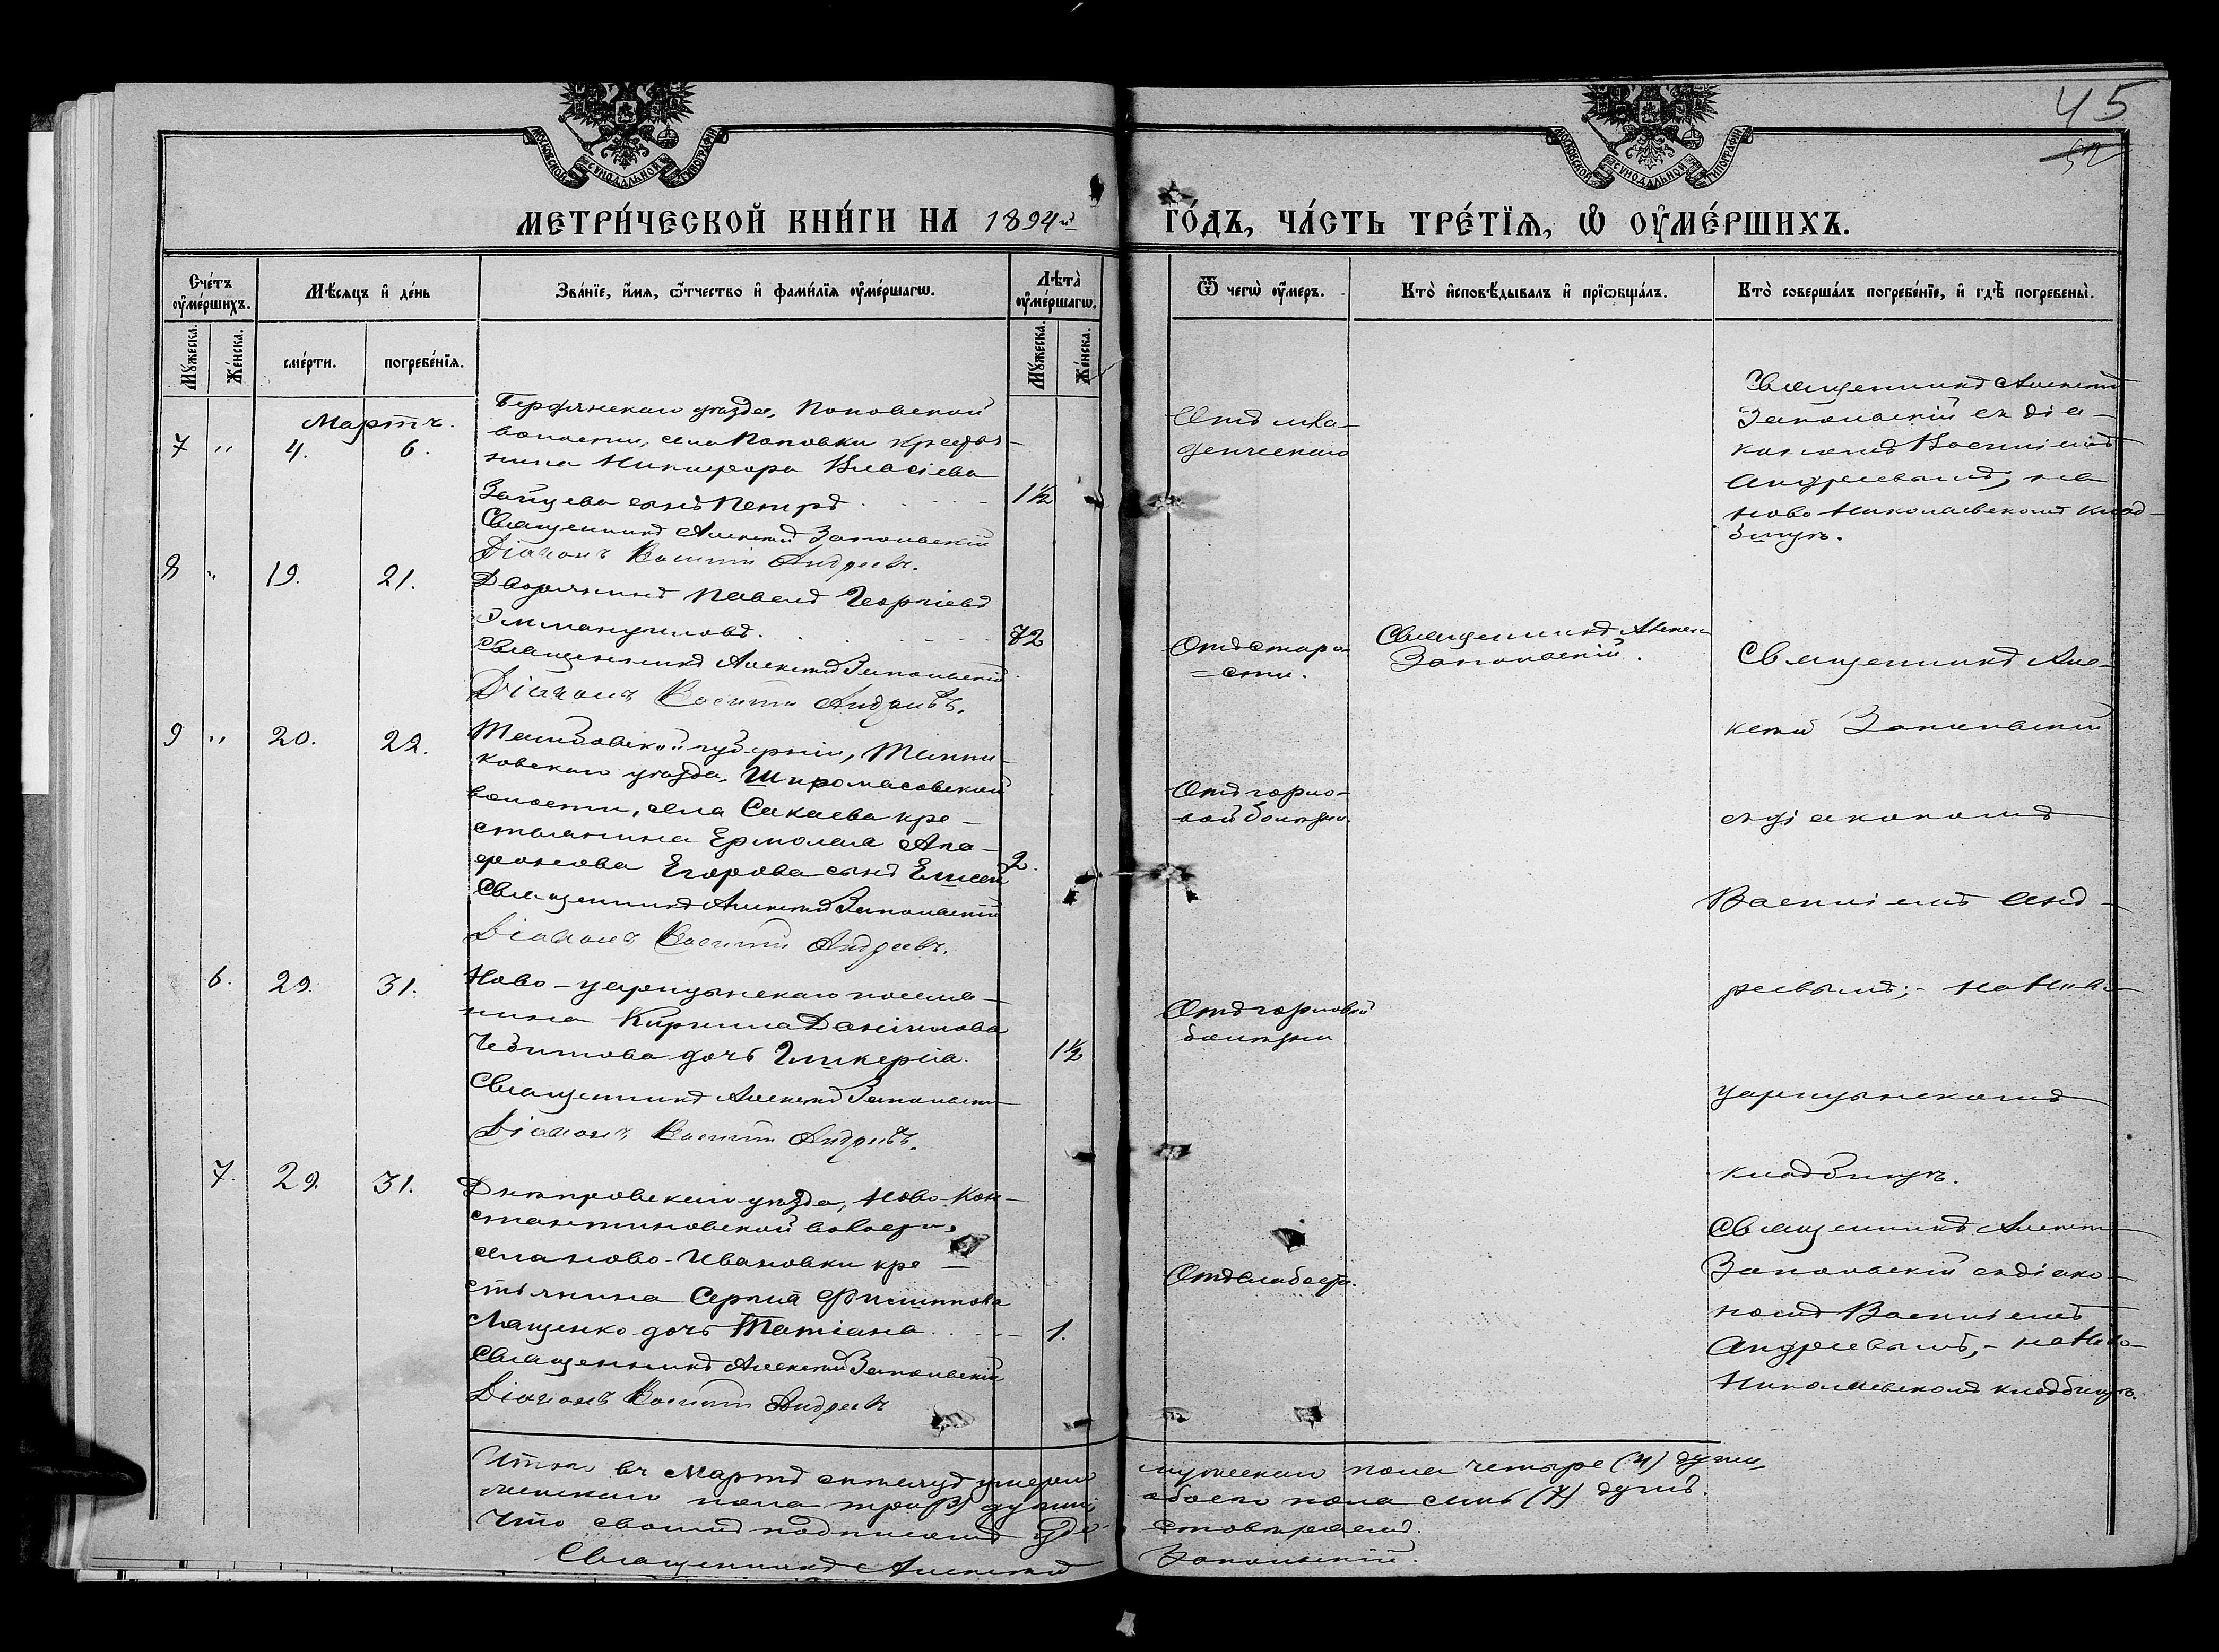 45
52
МОСКОВСКОЙ СѴНОДАЛЬНОЙ ТИПОГРАФІИ
МОСКОВСКОЙ СѴНОДАЛЬНОЙ ТИПОГРАФІИ
МЕТРИ́ЧЕСКОЙ КНИ́ГИ НА 1894й ГО́ДЪ, ЧА́СТЬ ТРЕ́ТЇѦ, Ѡ҆ ОУ҆МЕ́РШИХЪ.
Сче́тъ оу҆ме́ршихъ.
Мꙋ́жеска.
Же́нска.
Мѣ́сѧцъ и҆ де́нь
сме́рти.
погребе́нїѧ.
Зва́нїе, и҆́мѧ, ѻ҆́тчество и҆ фами́лїѧ оу҆ме́ршагѡ.
Лѣта̀ оу҆ме́ршагѡ.
Мꙋ́жеска.
Же́нска.
Ѿ чегѡ̀ оу҆́меръ.
Кто̀ и҆сповѣ́дывалъ и҆ прїѡбща́лъ.
Кто̀ соверша́лъ погребе́нїе, и҆ гдѣ̀ погребены̀.
Мартъ.
7 " 4. 6.
Бердянскаго уѣзда, Поповской
волости, села Поповки крестья-
нина Никифора Власіева
Зайцева сынъ Петръ 1½
Священникъ Алексій Запольскій
Діаконъ Василій Андреевъ.
Отъ мла-
денческаго
Священникъ Алексій
Запольскій съ діа-
кономъ Василіемъ
Андреевымъ, на
Ново Николаевскомъ клад-
бищѣ.
8 " 19. 21.
Дворянинъ Павелъ Георгіевъ
Эммануиловъ. 72
Священникъ Алексій Запольскій
Діаконъ Василій Андреевъ.
Отъ старо-
сти.
Священникъ Алексій
Запольскій.
Священникъ Але-
ксій Запольскій
съ діакономъ
Василіемъ Анд-
реевымъ; - на Ново-
царицынскомъ
кладбищѣ.
9 " 20. 22.
Тамбовской губерніи, Темни-
ковскаго уѣзда, Широмасовской
волости, села Сакаева кре-
стьянина Ермолая
Егорова сынъ Елисей 2.
Священникъ Алексій Запольскій
Діаконъ Василій Андреевъ.
Отъ горло-
вой болѣзни
6. 29. 31.
Ново-царицынскаго поселя-
нина Кирилла Даніилова
дочь Гликерія. 1½
Священникъ Алексій Запольскій
Діаконъ Василій Андреевъ.
Отъ горловой
болѣзни
7. 29. 31.
Днѣпровскаго уѣзда, Ново-Кон-
стантиновской волости,
села Ново-Ивановки кре-
стьянина Сергія Филиппова
Лащенко дочь Татіана 1.
Священникъ Алексій Запольскій
Діаконъ Василій Андреевъ
Отъ слабости.
Священникъ Алексій
Запольскій съ діако-
номъ Василіемъ
Андреевымъ, - на Ново-
Николаевскомъ кладбищѣ.
Итого въ Мартѣ мѣсяцѣ умерло мужескаго пола четыре (4) души,
женскаго пола три (3) души, обоего пола семь (7) душъ.
Что своимъ подписомъ удо- стовѣряемъ.
Священникъ Алексій Запольскій.